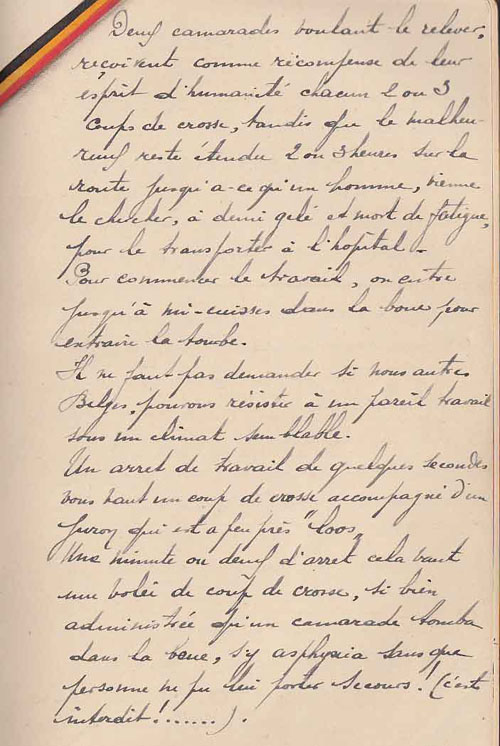 Deux camarades voulant le relever,
reçoivent comme récompense de leur
esprit d'humanité chacun 2 ou 3
coups de crosse, tandis que le malheu-
reux reste étendu 2 ou 3 heures sur la
route jusqu'a-ce qu'un homme, vienne
le chercher, à demi gelé et mort de fatigue,
pour le transporter à l'hôpital.
Pour commencer le travail, on entre
jusqu'à mi-cuisses dans la boue pour
extraire la tourbe.
Il ne faut pas demander si nous autres
Belges, pouvons résister à un pareil travail
sous un climat semblable.
Un arret de travail de quelques secondes
vous vaut un coup de crosse accompagné d'un
juron qui est a peu près "loos"
Une minute ou deux d'arret cela vaut
une volée de coup de crosse, si bien
administrée qu'un camarade tomba
dans la boue, s'y asphyxia sans que
personne ne pu lui porter secours! (c'est
interdit!.......).